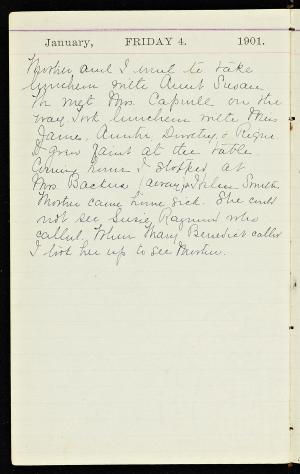 January, FRIDAY 4. 1901.
Mother and I went to take
luncheon with Aunt Susan
We met Mrs. Capwell on the
way. Took luncheon with Miss
James, Auntie, &
I grew faint at the table
Coming home I stopped at
Mrs. Backus (away) & Helen Smith.
Mother came home sick. She could
not see Susie Raymond who
called. When Mary Benedict called
I took her up to see Mother.